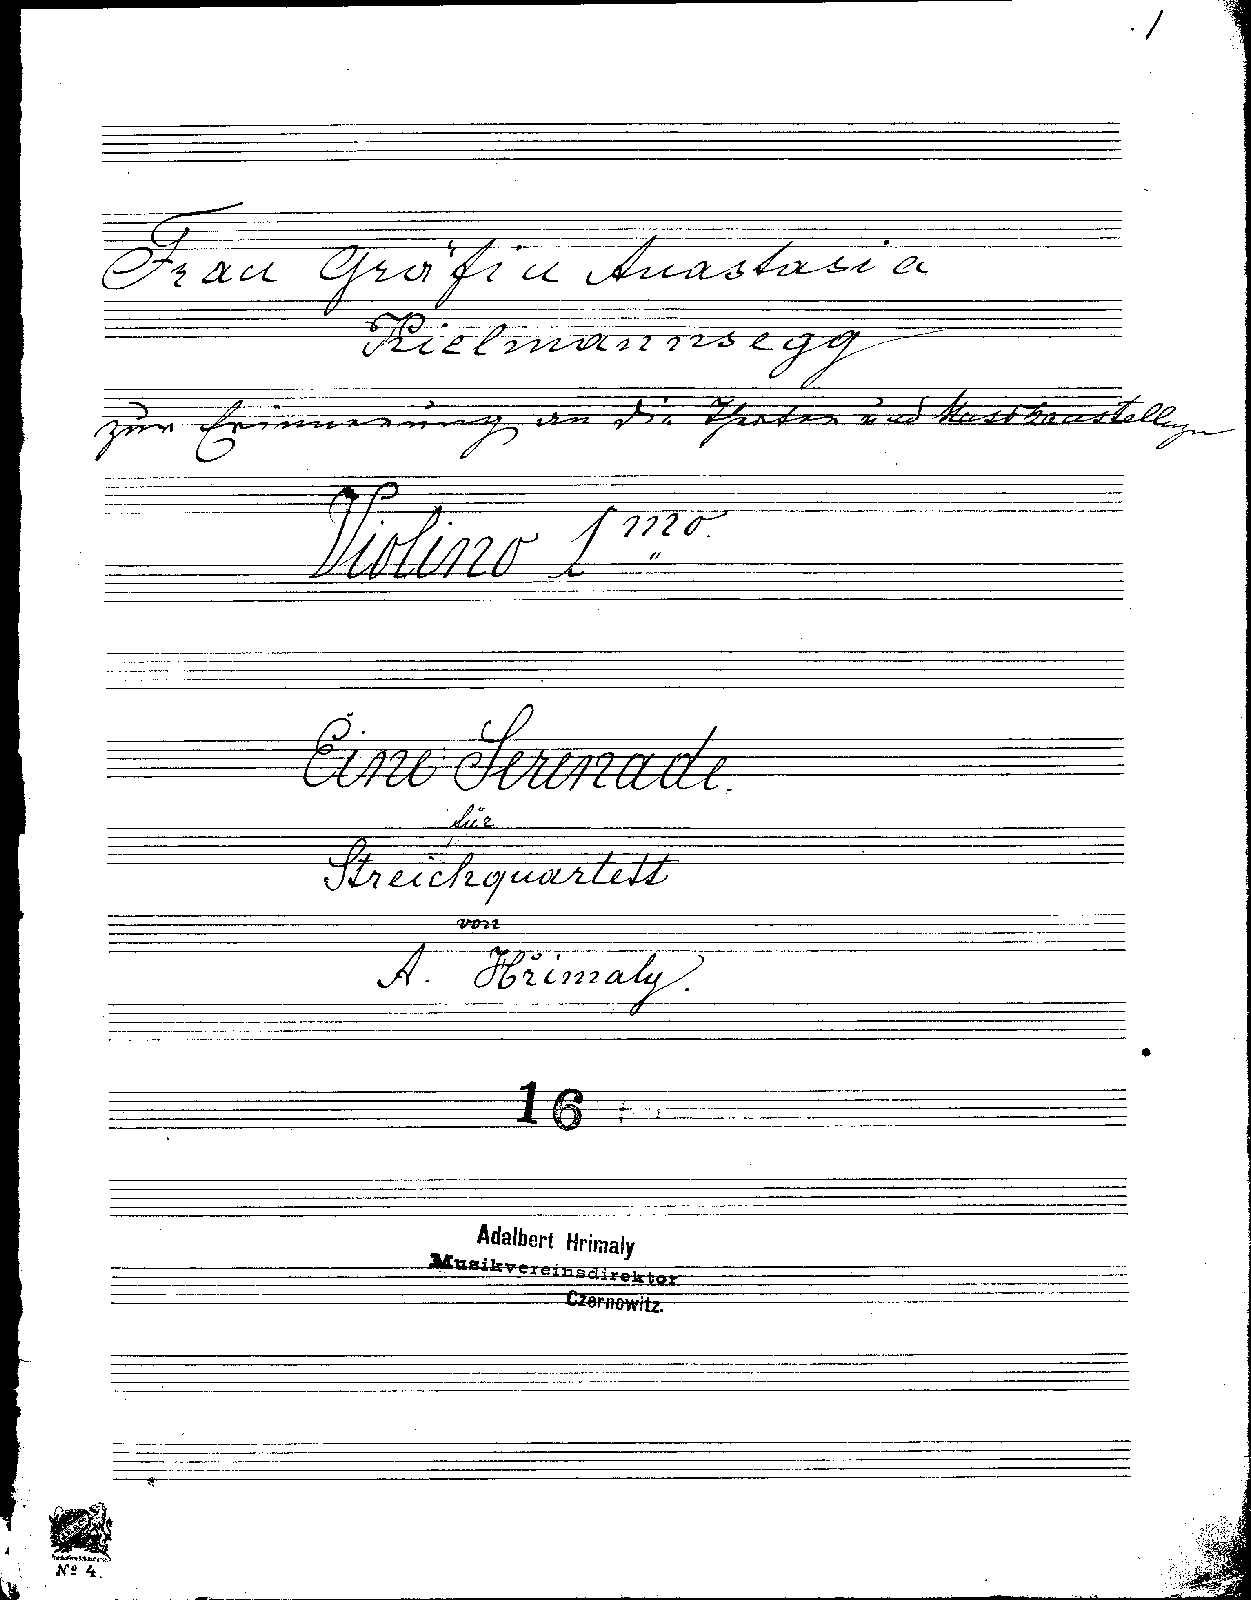 1
Frau Gräfin Anastasia
Kielmannsegg
zur Erinnerung an die Theater und Musikausstellung
Violino 1mo.
Eine Serenade.
für
Streichquartett
von
A. Hřimaly.
16
Adalbert Hrimaly
Musikvereinsdirektor
Czernowitz.
No 4.